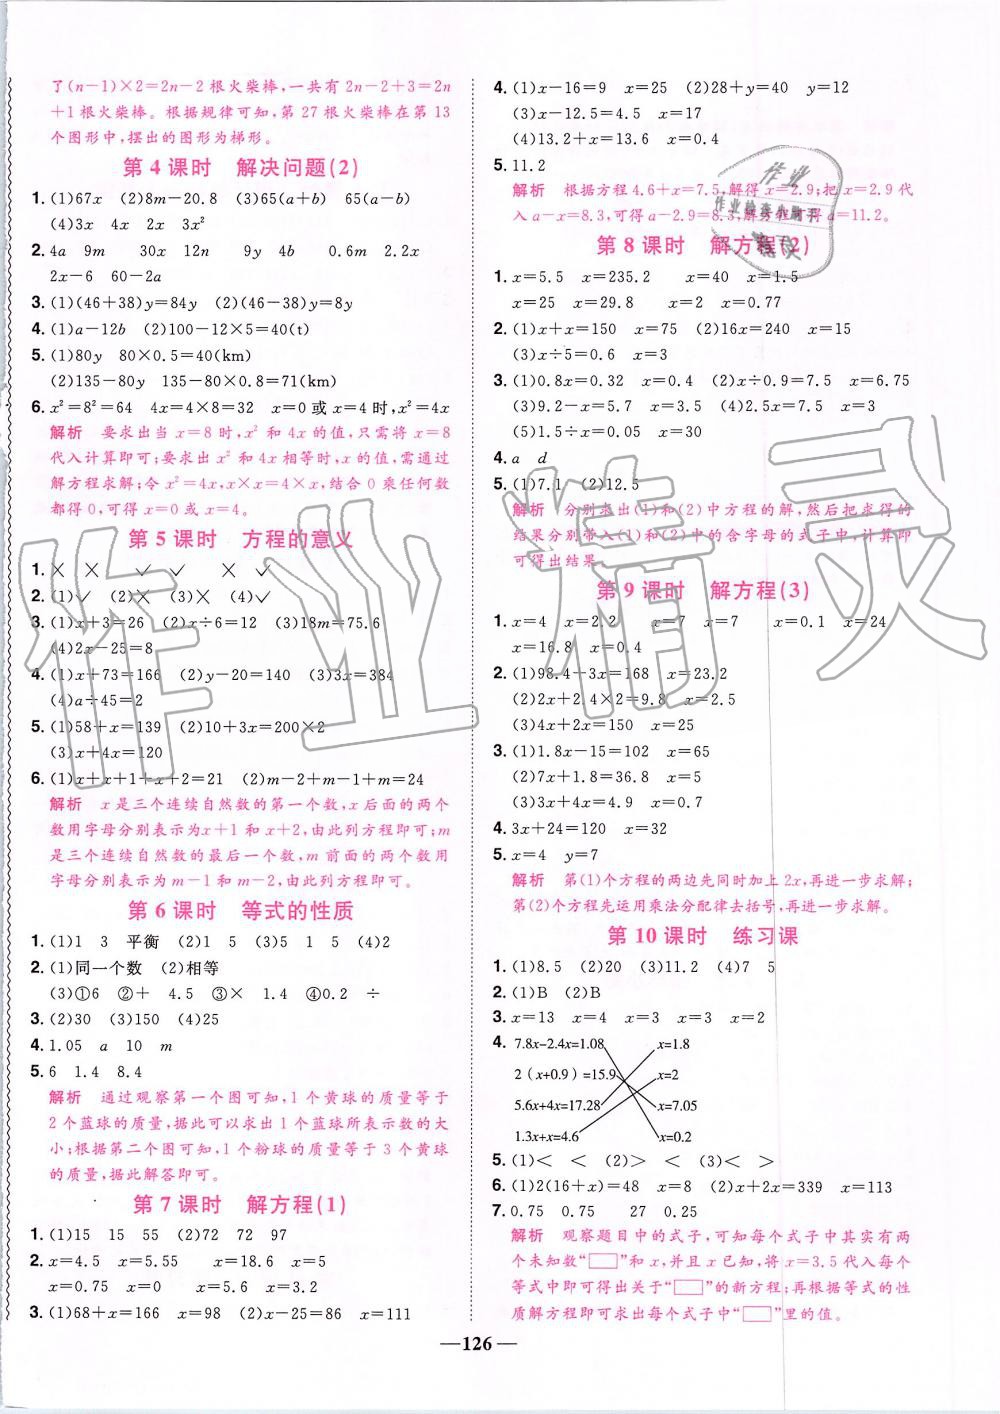 了(n－1)×2＝2n－2根火柴棒,一共有2n－2＋3＝2n
＋1根火柴棒。根据规律可知,第27根火柴棒在第13
个图形中,摆出的图形为梯形。
第4课时 解决问题(2)
1. (1)67x (2)8m－20.8 (3)65(a＋b) 65(a－b)
(4)3x 4x 2x 3x²
2. 4a 9m 30x 12n 9y 4b 0.6m 2.2x
2x－6 60－2a
3. (1)(46＋38)y＝84y (2)(46－38)y＝8y
4. (1)a－12b (2)100－12×5＝40(t)
5. (1)80y 80×0.5＝40(km)
(2)135－80y 135－80×0.8＝71(km)
6. x²＝8²＝64 4x＝4×8＝32 x＝0或x＝4时,x²＝4x
解析 要求出当x＝8时,x²和4x的值,只需将x＝8
代入计算即可;要求出x²和4x相等时,x的值,需通过
解方程求解;令x²＝4x,x×x＝4×x,结合0乘任何数
都得0,可得x＝0或x＝4。
第5课时 方程的意义
1. × × ✓ ✓ × ✓
2. (1)✓ (2)× (3)× (4)✓
3. (1)x＋3＝26 (2)x÷6＝12 (3)18m＝75.6
(4)2x－25＝8
4. (1)x＋73＝166 (2)y－20＝140 (3)3x＝384
(4)a÷45＝2
5. (1)58＋x＝139 (2)10＋3x＝200×2
(3)x＋4x＝120
6. (1)x＋x＋1＋x＋2＝21 (2)m－2＋m－1＋m＝24
解析 x是三个连续自然数的第一个数,x后面的两个
数用字母分别表示为x＋1和x＋2,由此列方程即可;m
是三个连续自然数的最后一个数,m前面的两个数用
字母分别表示为m－1和m－2,由此列方程即可。
第6课时 等式的性质
1. (1)1 3 平衡 (2)1 5 (3)5 1 5 (4)2
2. (1)同一个数 (2)相等
(3)①6 ②＋ 4.5 ③× 1.4 ④0.2 ÷
3. (2)30 (3)150 (4)25
4. 1.05 a 10 m
5. 6 1.4 8.4
解析 通过观察第一个图可知,1个黄球的质量等于
2个蓝球的质量,据此可以求出1个蓝球所表示数的大
小;根据第二个图可知,1个粉球的质量等于3个黄球
的质量,据此解答即可。
第7课时 解方程(1)
1. (1)15 15 55 (2)72 72 97
2. x＝4.5 x＝5.5 x＝18.6 x＝5
x＝0.75 x＝0 x＝5.6 x＝3.2
3. (1)68＋x＝166 x＝98 (2)x－25＝86 x＝111
4. (1)x－16＝9 x＝25 (2)28＋y＝40 y＝12
(3)x－12.5＝4.5 x＝17
(4)13.2＋x＝13.6 x＝0.4
5. 11.2
解析 根据方程4.6＋x＝7.5,解得x＝2.9;把x＝2.9代
入a－x＝8.3,可得a－2.9＝8.3,解方程可得a＝11.2。
第8课时 解方程(2)
1. x＝5.5 x＝235.2 x＝40 x＝1.5
x＝25 x＝29.8 x＝2 x＝0.77
2. (1)x＋x＝150 x＝75 (2)16x＝240 x＝15
(3)x÷5＝0.6 x＝3
3. (1)0.8x＝0.32 x＝0.4 (2)x÷0.9＝7.5 x＝6.75
(3)9.2－x＝5.7 x＝3.5 (4)2.5x＝7.5 x＝3
(5)1.5÷x＝0.05 x＝30
4. a d
5. (1)7.1 (2)12.5
解析 分别求出(1)和(2)中方程的解,然后把求得的
结果分别带入(1)和(2)中的含字母的式子中,计算即
可得出结果。
第9课时 解方程(3)
1. x＝4 x＝2.2 x＝7 x＝7 x＝0.1 x＝24
x＝16.8 x＝0.4
2. (1)98.4＋3x＝168 x＝23.2
(2)2x＋2.4×2＝9.8 x＝2.5
(3)4x＋2x＝150 x＝25
3. (1)1.8x－15＝102 x＝65
(2)7x＋1.8＝36.8 x＝5
(3)3x＋4x＝4.9 x＝0.7
4. 3x＋24＝120 x＝32
5. x＝4 y＝7
解析 第(1)个方程的两边先同时加上2x,再进一步求解;
第(2)个方程先运用乘法分配律去括号,再进一步求解。
第10课时 练习课
1. (1)8.5 (2)20 (3)11.2 (4)7 5
2. (1)B (2)B
3. x＝13 x＝4 x＝3 x＝3 x＝2
4. 7.8x-2.4x=1.08 x=1.8
2（x+0.9）=15.9 x=2
5.6x+4x=17.28 x=7.05
1.3x+x=4.6 x=0.2
5. (1)＜ ＜ (2)＞ ＜ (3)＜ ＞
6. (1)2(16＋x)＝48 x＝8 (2)2x＋x＝339 x＝113
7. 0.75 0.75 27 0.25
解析 观察题目中的式子,可知每个式子中其实有两
个未知数“□”和x,并且x已知,将x＝3.5代入每个
等式中即可得出关于“□”的新方程;再根据等式的性
质解方程即可求出每个式子中“□”里的值。
—126—
作业精灵
作业
作业检查小助手
精灵